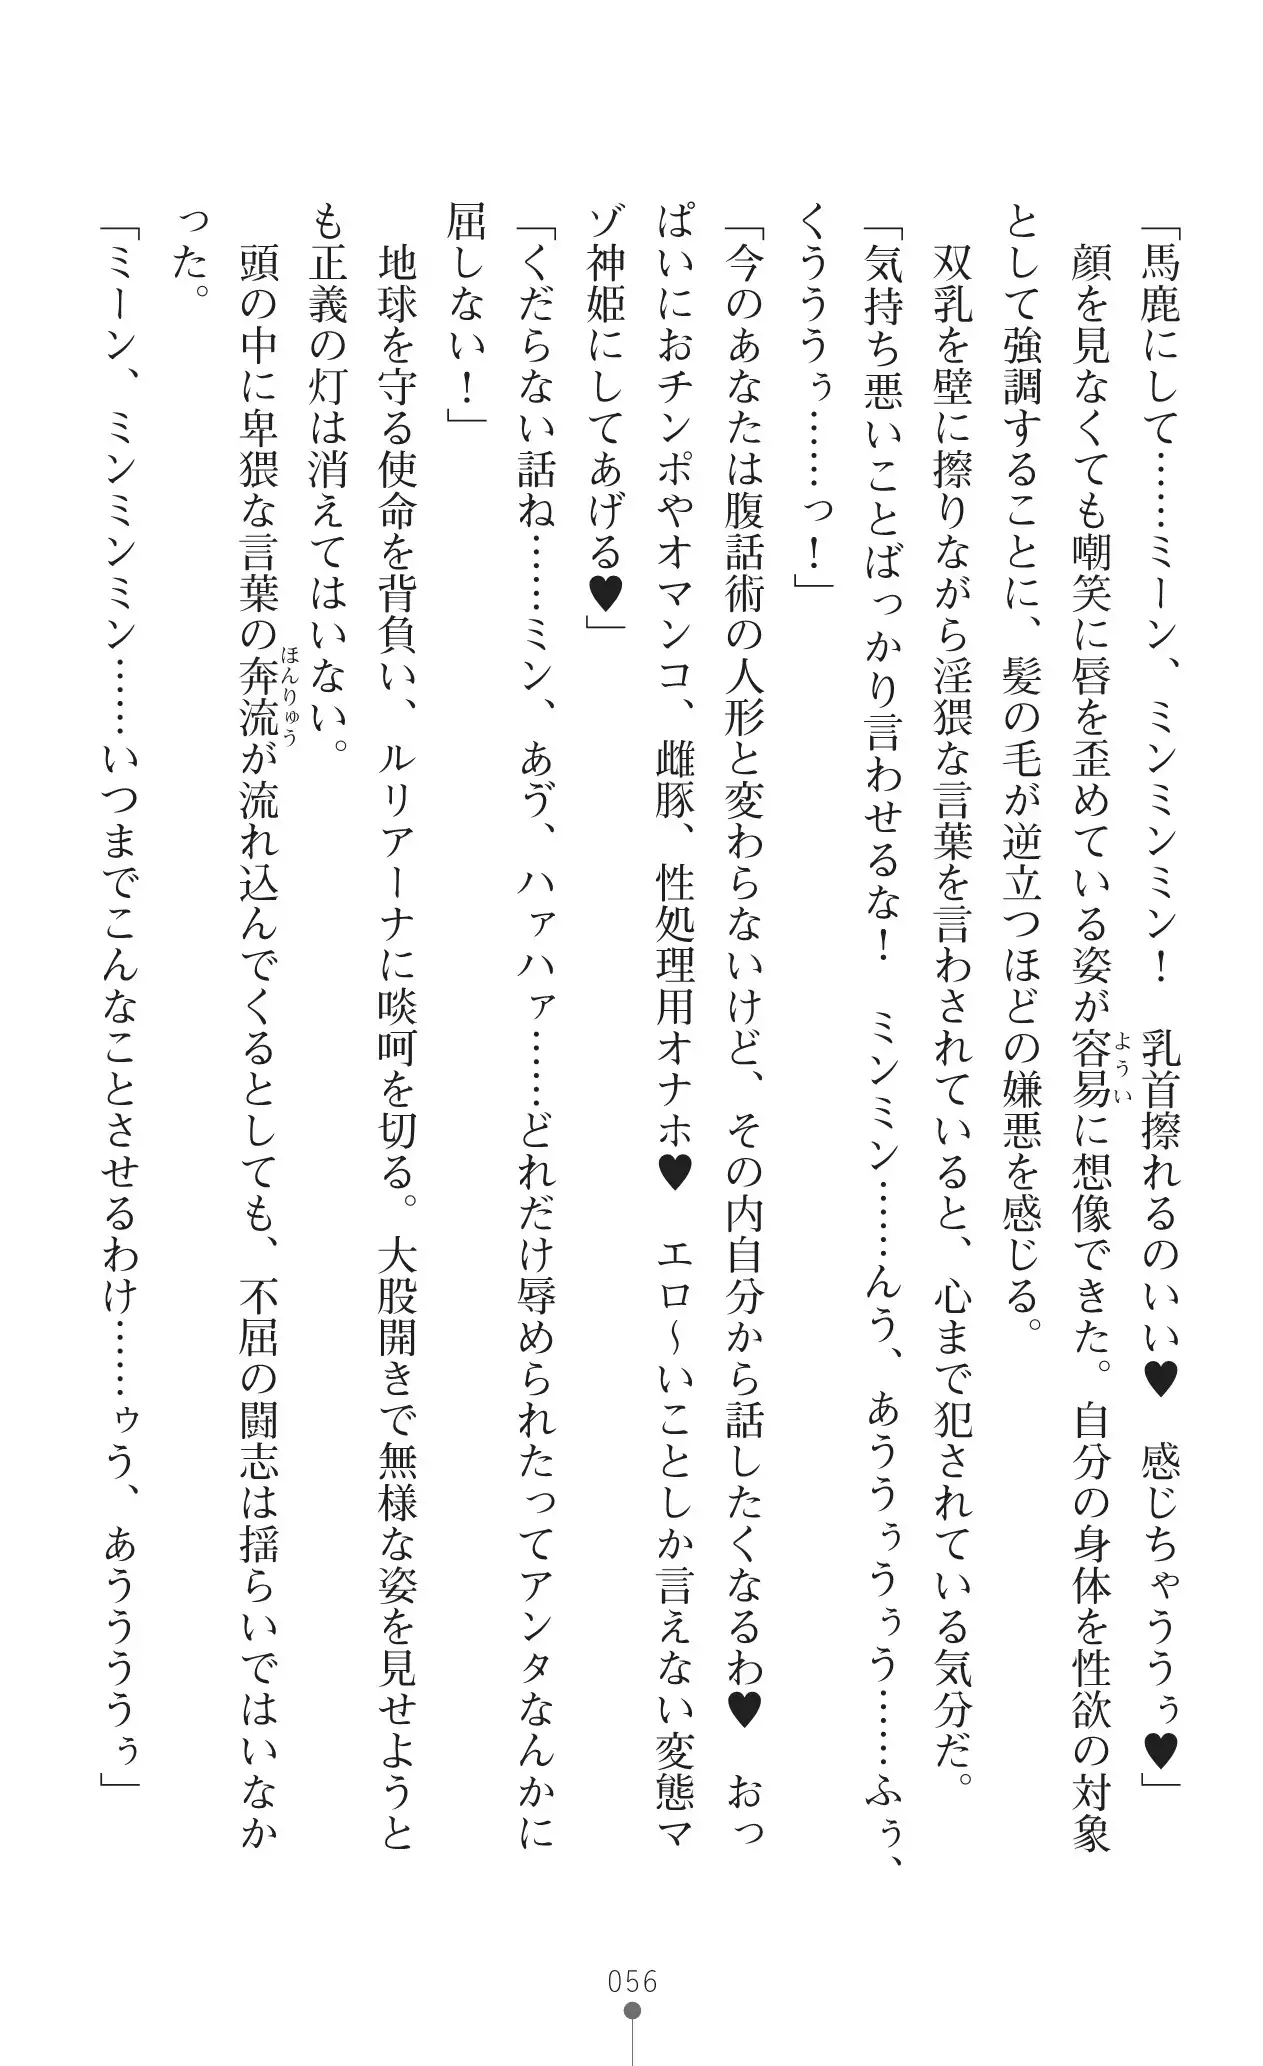 「馬鹿にして……ミーン、ミンミンミン！　乳首擦れるのいい♥　感じちゃううぅ♥」
　顔を見なくても嘲笑に唇を歪めている姿が容易に想像できた。自分の身体を性欲の対象
ようい
として強調することに、髪の毛が逆立つほどの嫌悪を感じる。
　双乳を壁に擦りながら淫猥な言葉を言わされていると、心まで犯されている気分だ。
「気持ち悪いことばっかり言わせるな！　ミンミン……んう、あううぅうぅう……ふぅ、
くうううぅ……っ！」
「今のあなたは腹話術の人形と変わらないけど、その内自分から話したくなるわ♥　おっ
ぱいにおチンポやオマンコ、雌豚、性処理用オナホ♥　エロ～いことしか言えない変態マ
ゾ神姫にしてあげる♥」
「くだらない話ね……ミン、あゔ、ハァハァ……どれだけ辱められたってアンタなんかに
屈しない！」
　地球を守る使命を背負い、ルリアーナに啖呵を切る。大股開きで無様な姿を見せようと
も正義の灯は消えてはいない。
　頭の中に卑猥な言葉の奔流が流れ込んでくるとしても、不屈の闘志は揺らいではいなか
ほんりゅう
った。
「ミーン、ミンミンミン……いつまでこんなことさせるわけ……ゥう、あううううぅ」
056